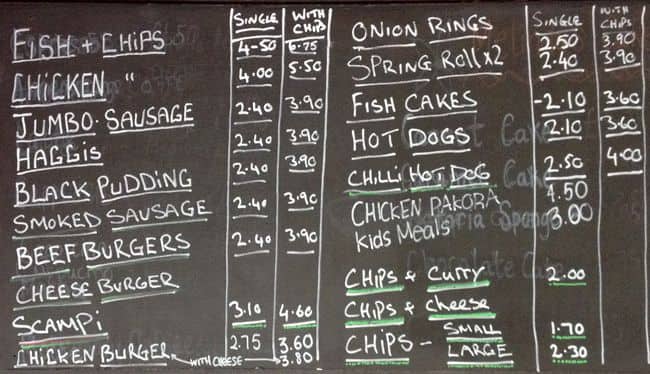 SINGLE WITH CHIPS
FISH + CHIPS 4-50 6.75
CHICKEN " 4.00 5.50
JUMBO SAUSAGE 2.40 3.90
HAGGIS 2.40 3.90
BLACK PUDDING 2.40 3.90
SMOKED SAUSAGE 2.40 3.90
BEEF BURGERS 2.40 3.90
CHEESE BURGER
SCAMPI 3.10 4.60
CHICKEN BURGER 2.75 3.60
WITH CHEESE 3.80
SINGLE WITH CHIPS
ONION RINGS 2.50 3.90
SPRING Roll x2 2.40 3.90
FISH CAKES -2.10 3.60
HOT DOGS 2.10 3.60
CHILLI HOT DOG 2.50 4.00
CHICKEN PAKORA 4.50
Kids Meals 3.00
CHIPS & Curry 2.00
CHIPS & Cheese
CHIPS - SMALL 1.70
LARGE 2.30